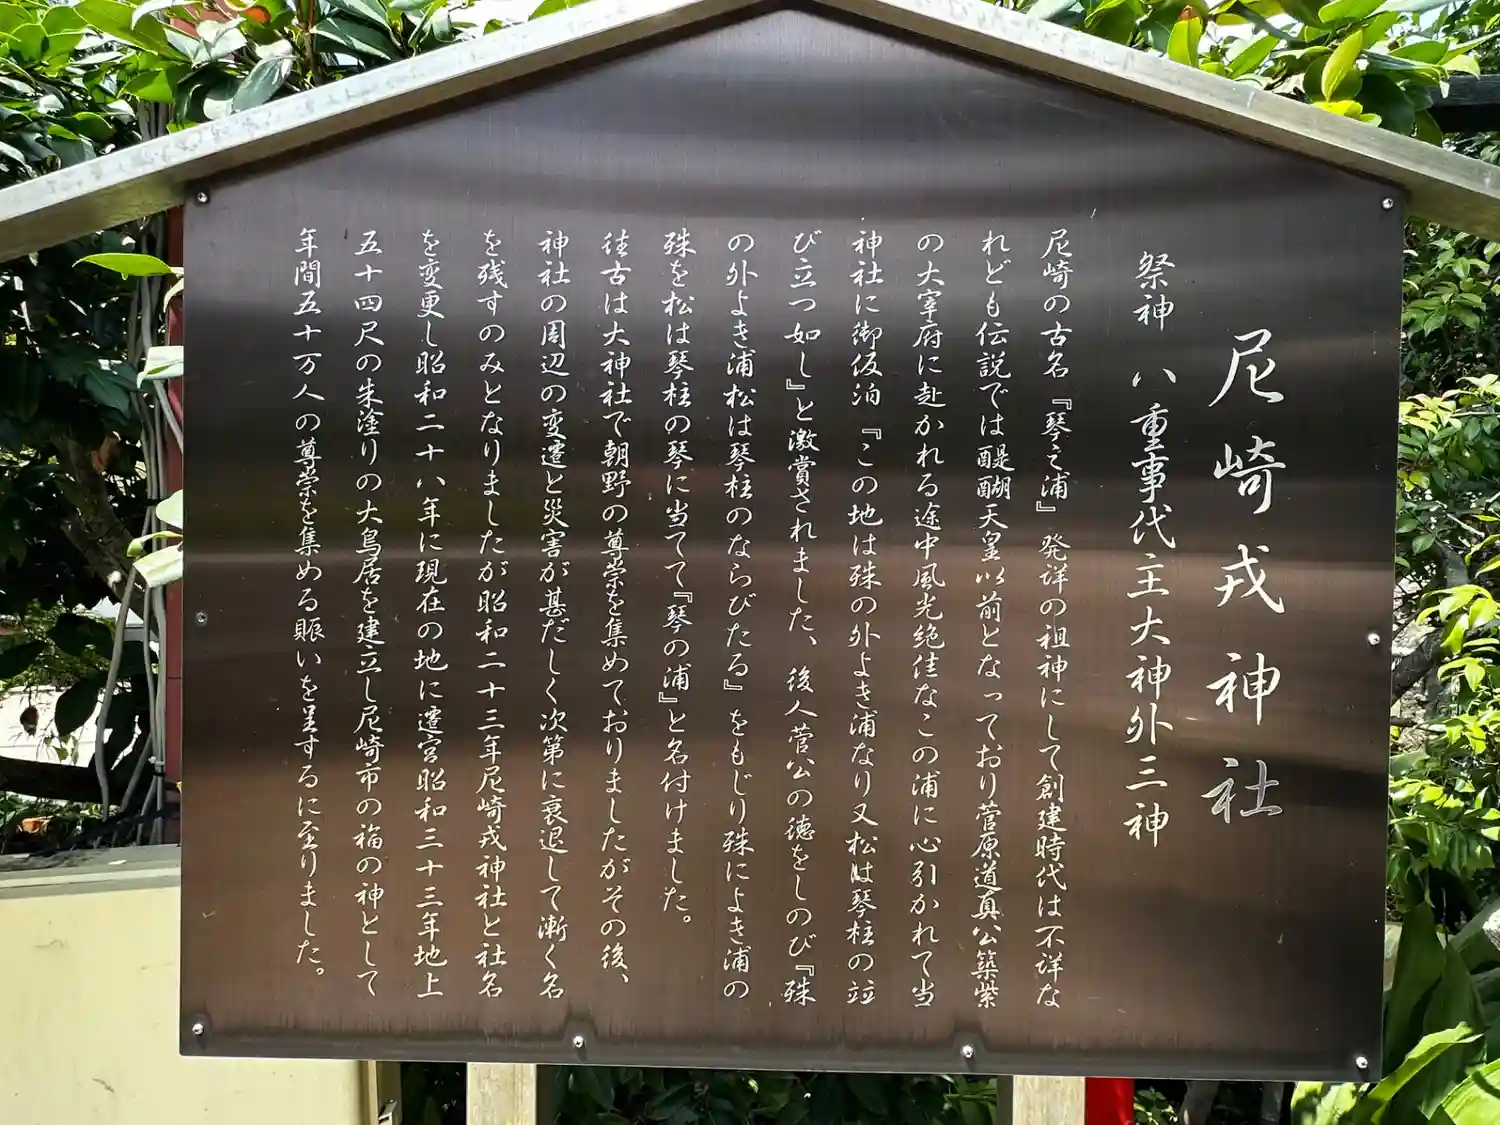 尼崎戎神社
祭神 八重事代主大神外三神
尼崎の古名『琴之浦』発詳の祖神にして創建時代は不詳な
れども伝説では醍醐天皇以前となっており菅原道真公築紫
の大宰府に赴かれる途中風光絶佳なこの浦に心引かれて当
神社に御仮泊『この地は殊の外よき浦なり又松は琴柱の竝
び立つ如し』と激賞されました、後人菅公の徳をしのび『殊
の外よき浦松は琴柱のならびたる』をもじり殊によき浦の
殊を松は琴柱の琴に当てて『琴の浦』と名付けました。
往古は大神社で朝野の尊崇を集めておりましたがその後、
神社の周辺の変遷と災害が甚だしく次第に衰退して漸く名
を残すのみとなりましたが昭和二十三年尼崎戎神社と社名
を変更し昭和二十八年に現在の地に遷宮昭和三十三年地上
五十四尺の朱塗りの大鳥居を建立し尼崎市の福の神として
年間五十万人の尊崇を集める賑いを呈するに至りました。